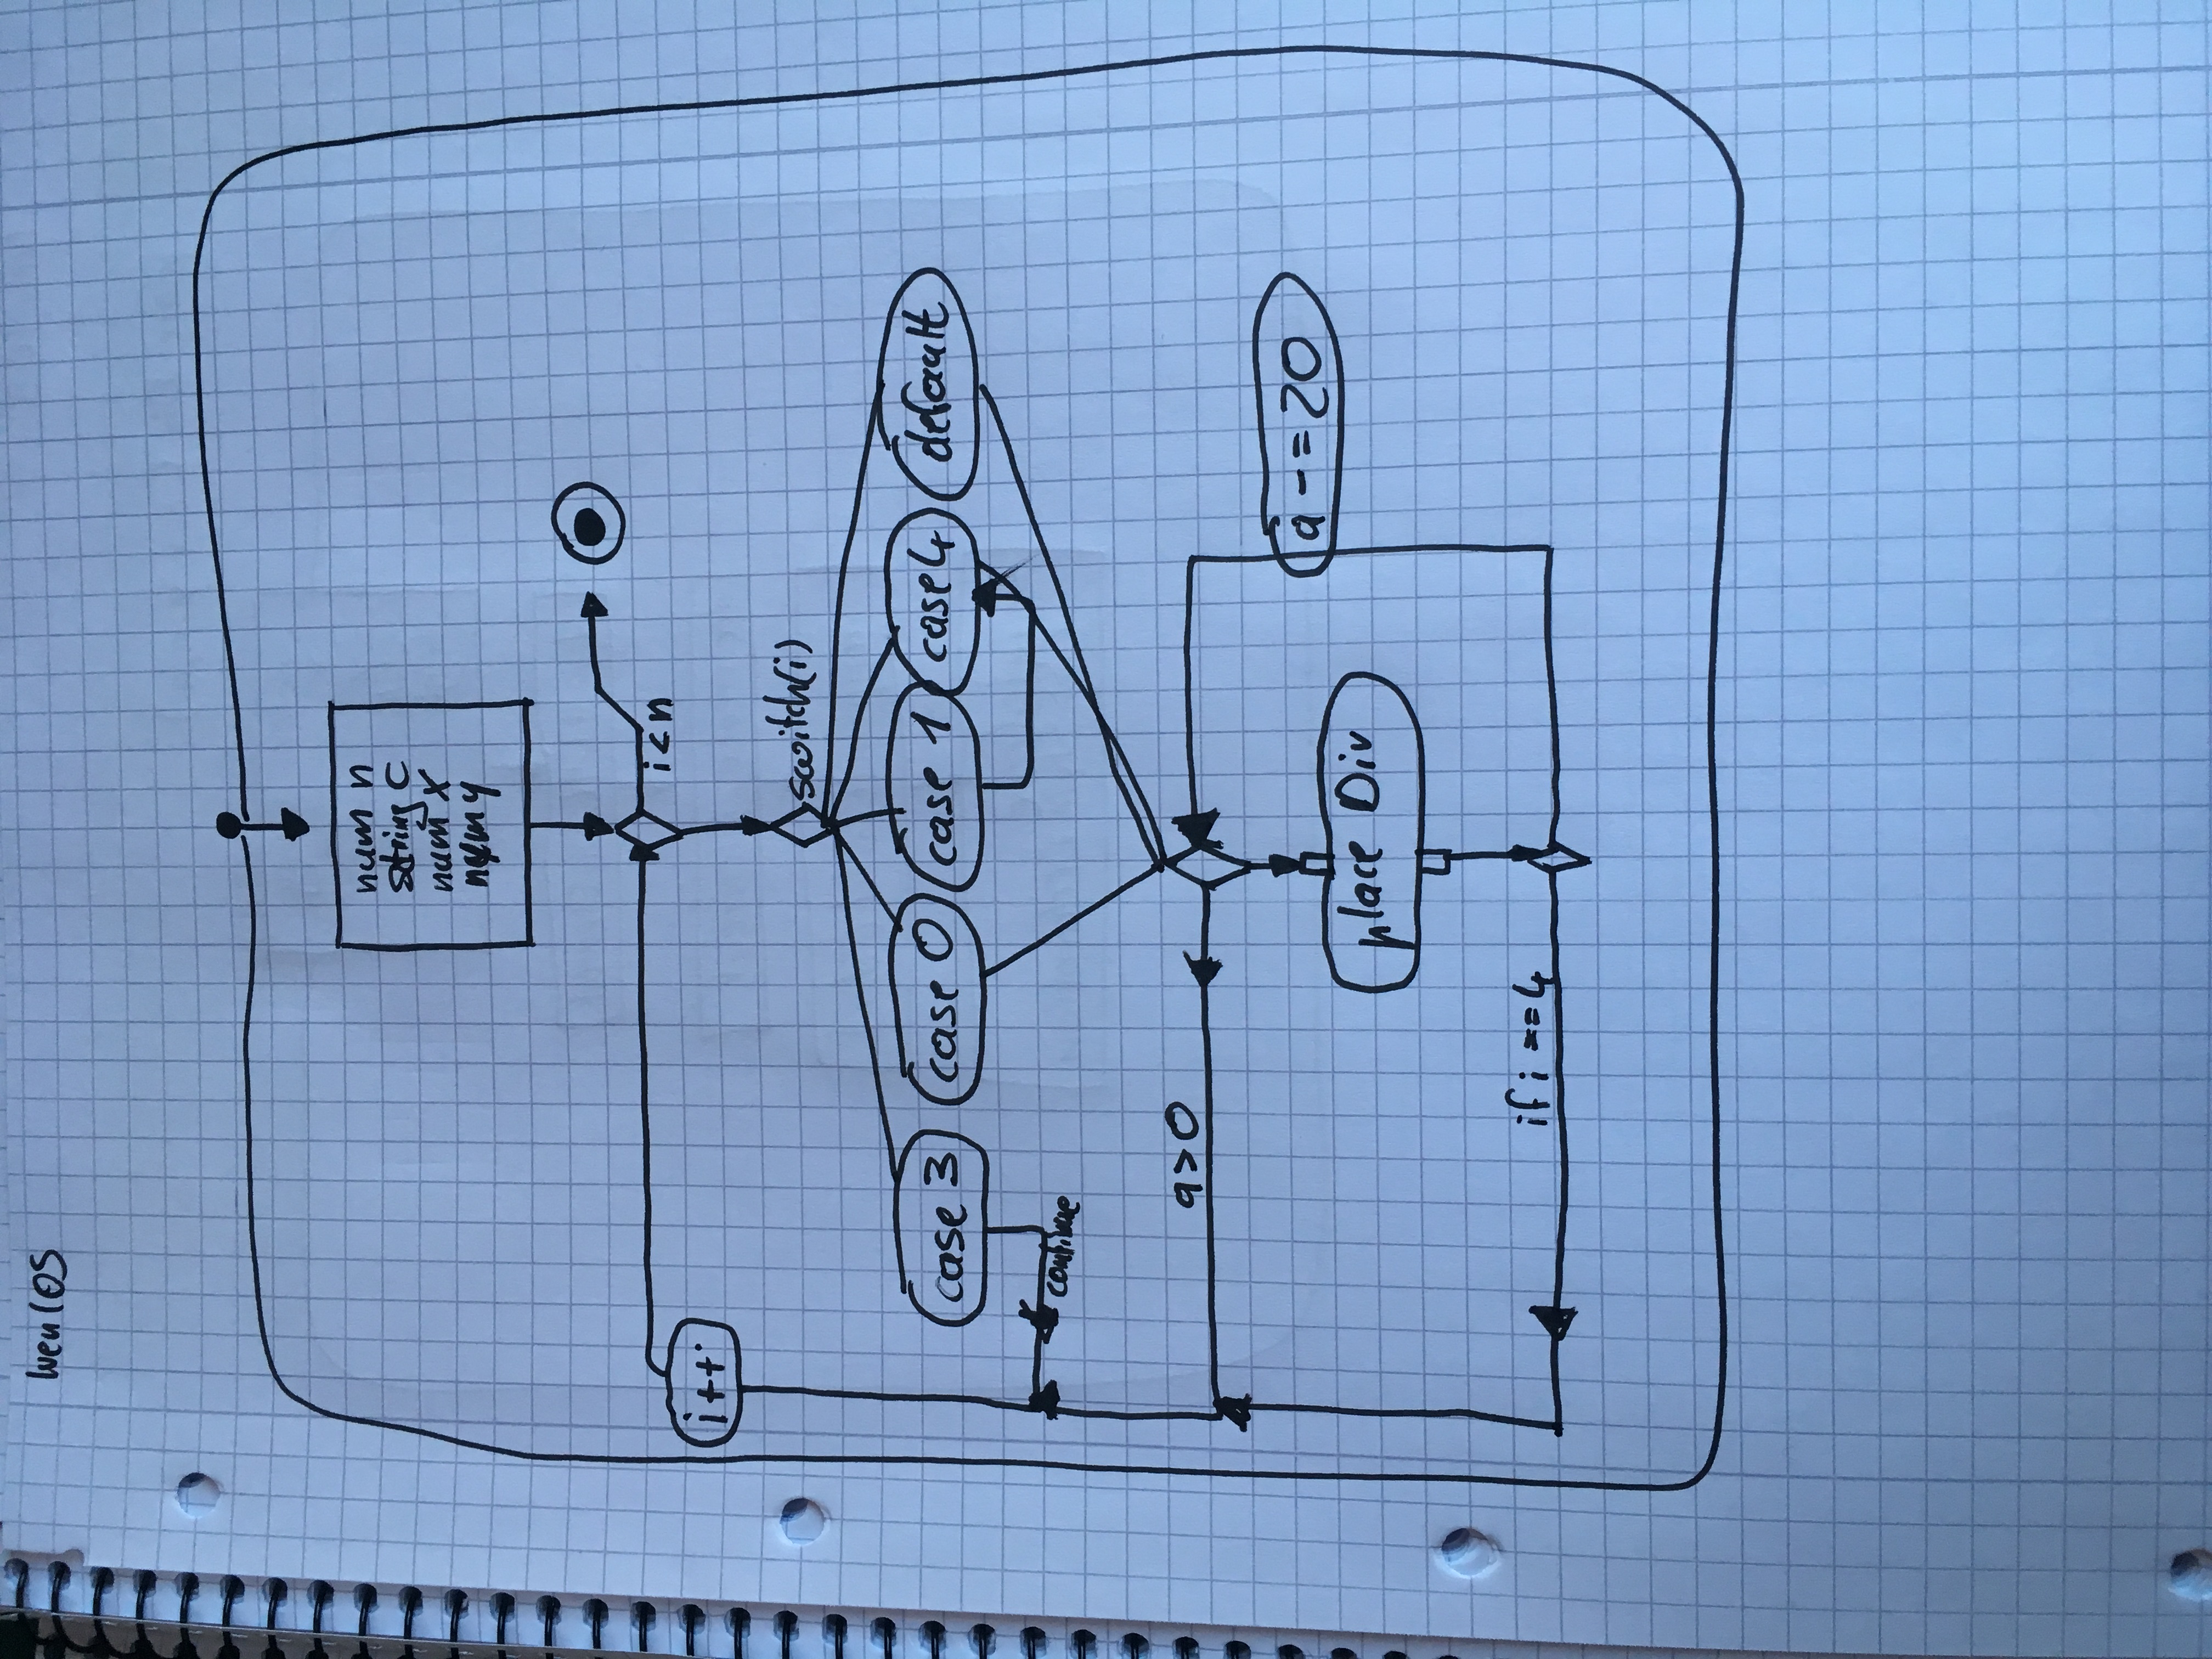 num n
string c
num x
num y
i<n
i++
switch(i)
case 3
case 0
case 1
case 4
default
continue
a>0
a -= 20
place Div
if i == 4